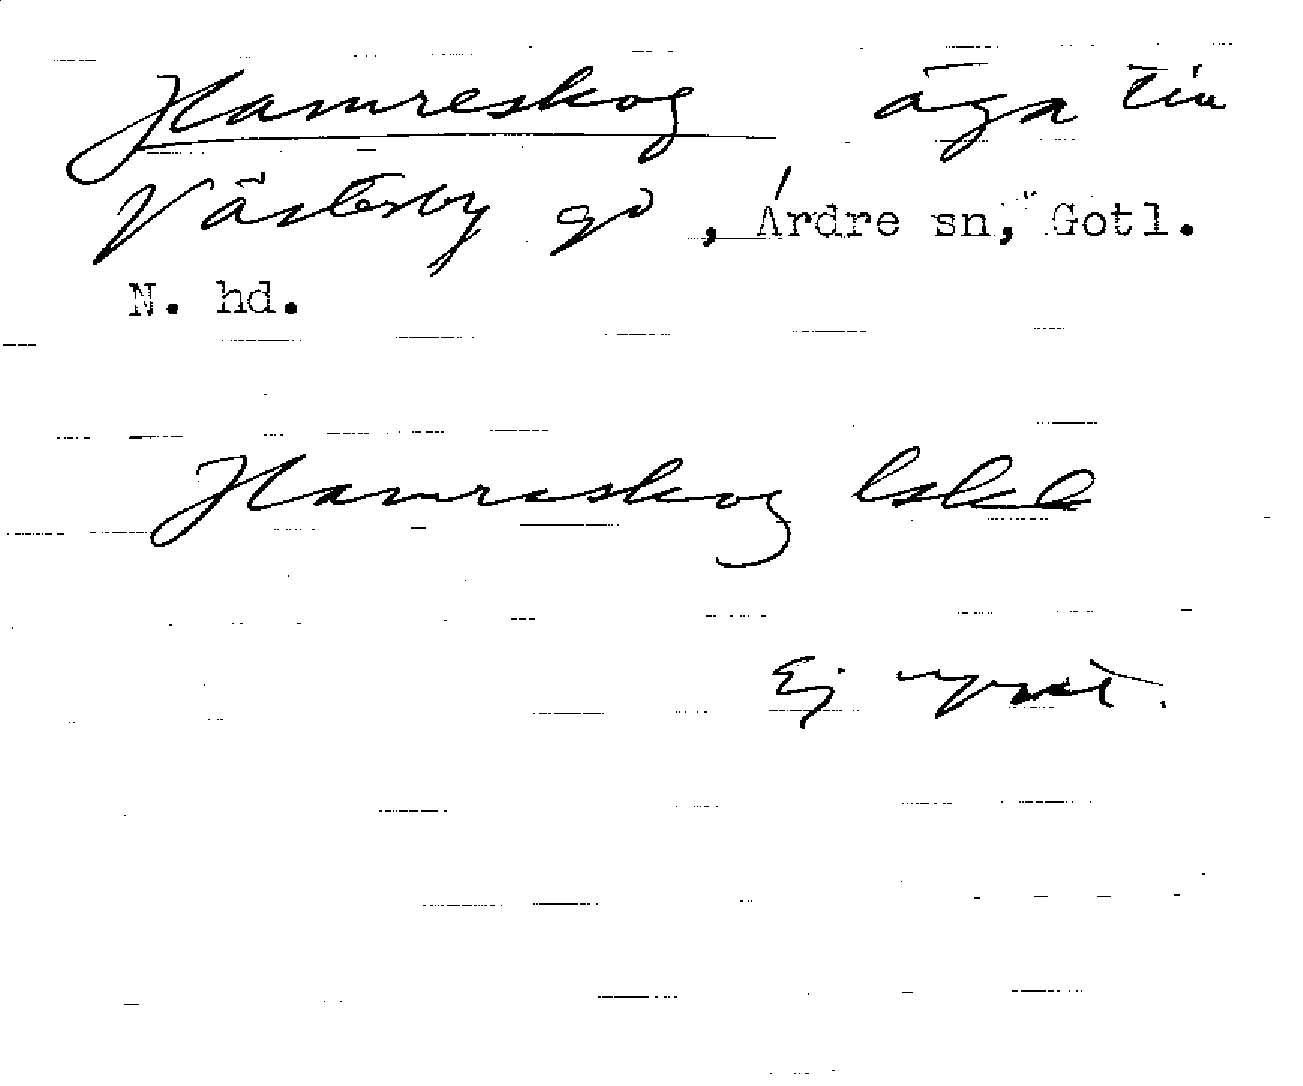 Hamreskog äga till
Västerby gd, Ardre sn, Gotl.
N. hd.
Hamreskog
Ej